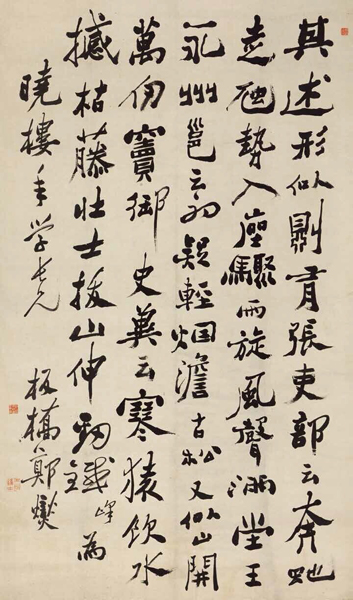 其述形似則有張吏部云奔虵
走虺勢入座驟雨旋風聲滿堂王
永州邕云初疑輕烟澹古松又似山開
萬仞竇御史冀云寒猿飲水
撼枯藤壯士拔山伸勁鐵峰為
曉樓年學長兄
板橋鄭燮